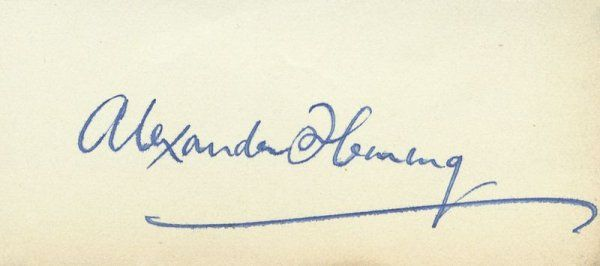 Alexander Fleming